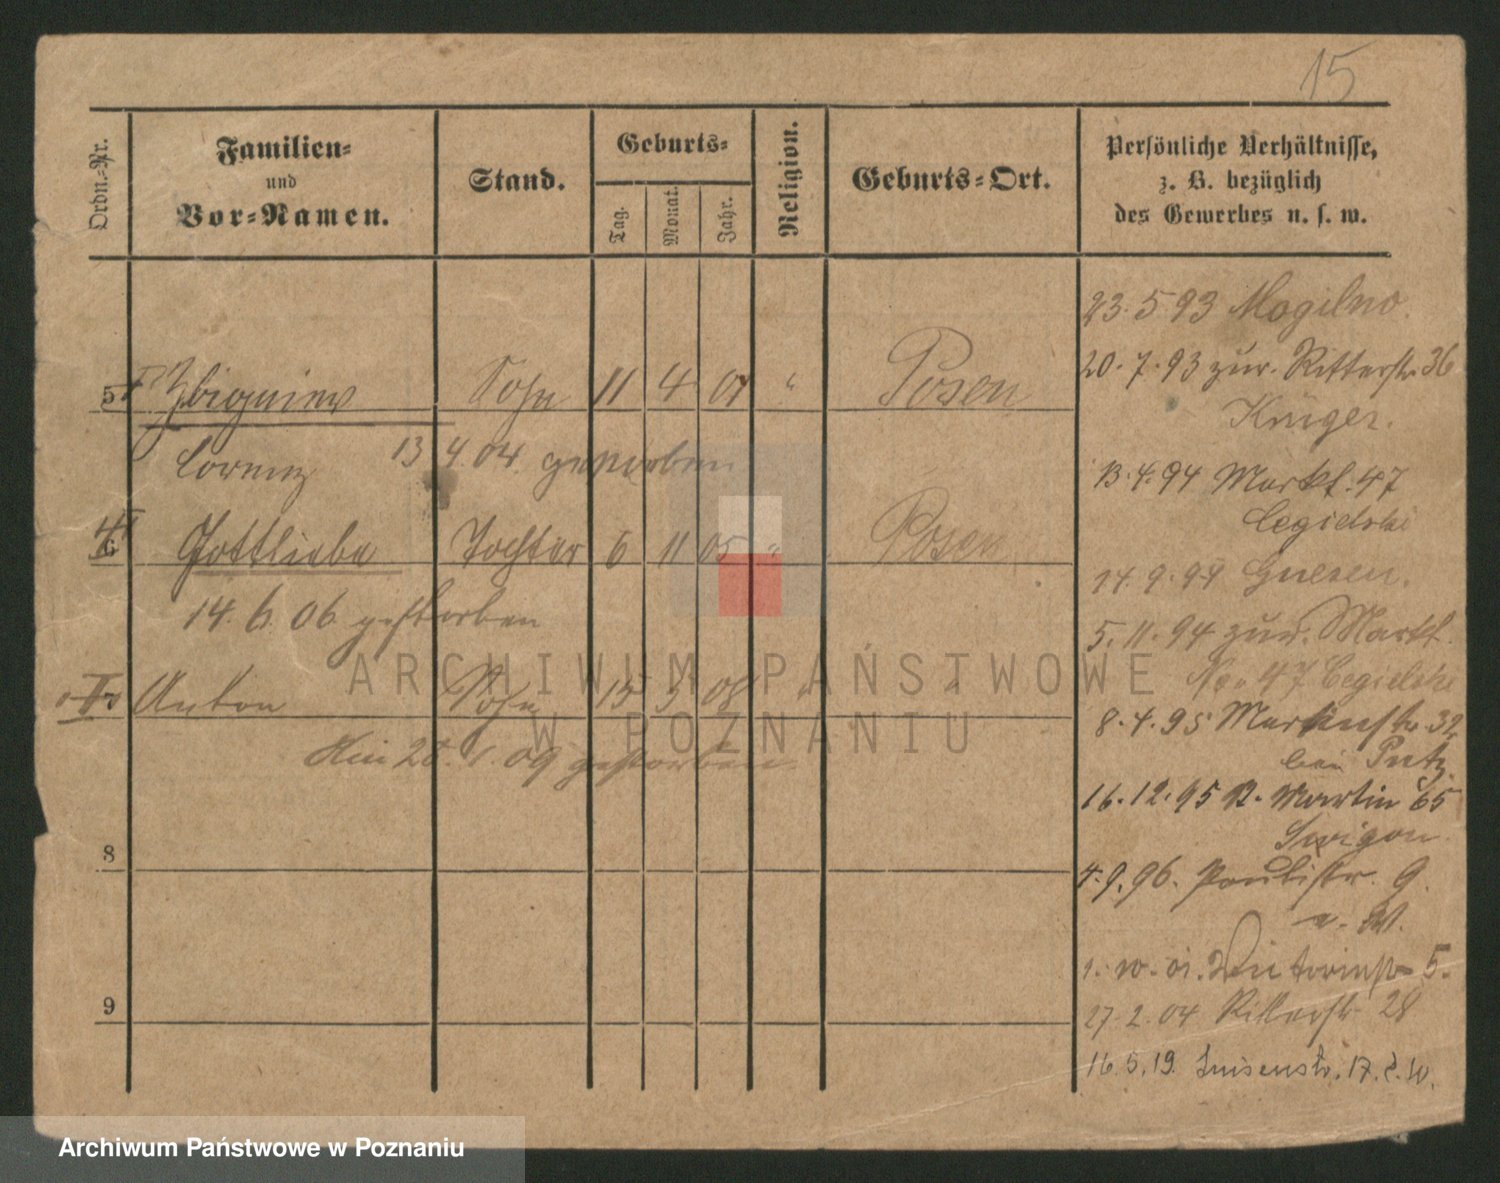 15
Ordn.-Nr.
Familien-
und
Vor-Namen.
Stand.
Geburts-
Tag.
Monat.
Jahr.
Religion.
Geburts-Ort.
Persönliche Verhältnisse,
z. B. bezüglich
des Gewerbes u. s. w.
5 Zbigniew Sohn 11 4 04 " Posen
Lorenz 13 4.04. gestorben
6 Gottliebe Tochter 6 11 05 " Posen
14. 6. 06 gestorben
Anton Sohn 15 5 08 " "
09 gestorben
8
9
23. 5 93 Mogilno.
20. 7. 93 zur. Ritterstr. 36
Krüger.
13. 4. 94 Markt. 47
Cegielski
14. 9. 94 Gnesen.
5. 11. 94 zur. Markt.
No. 47 Cegielski
8. 4. 95 32
bei Putz.
16. 12. 95 St. Martin 65
4. 9. 96. Paulistr. 9.
5.
27. 2. 04 Ritterstr. 28
16. 5. 19. Luisenstr. 17.
ARCHIWUM PAŃSTWOWE
W POZNANIU
Archiwum Państwowe w Poznaniu